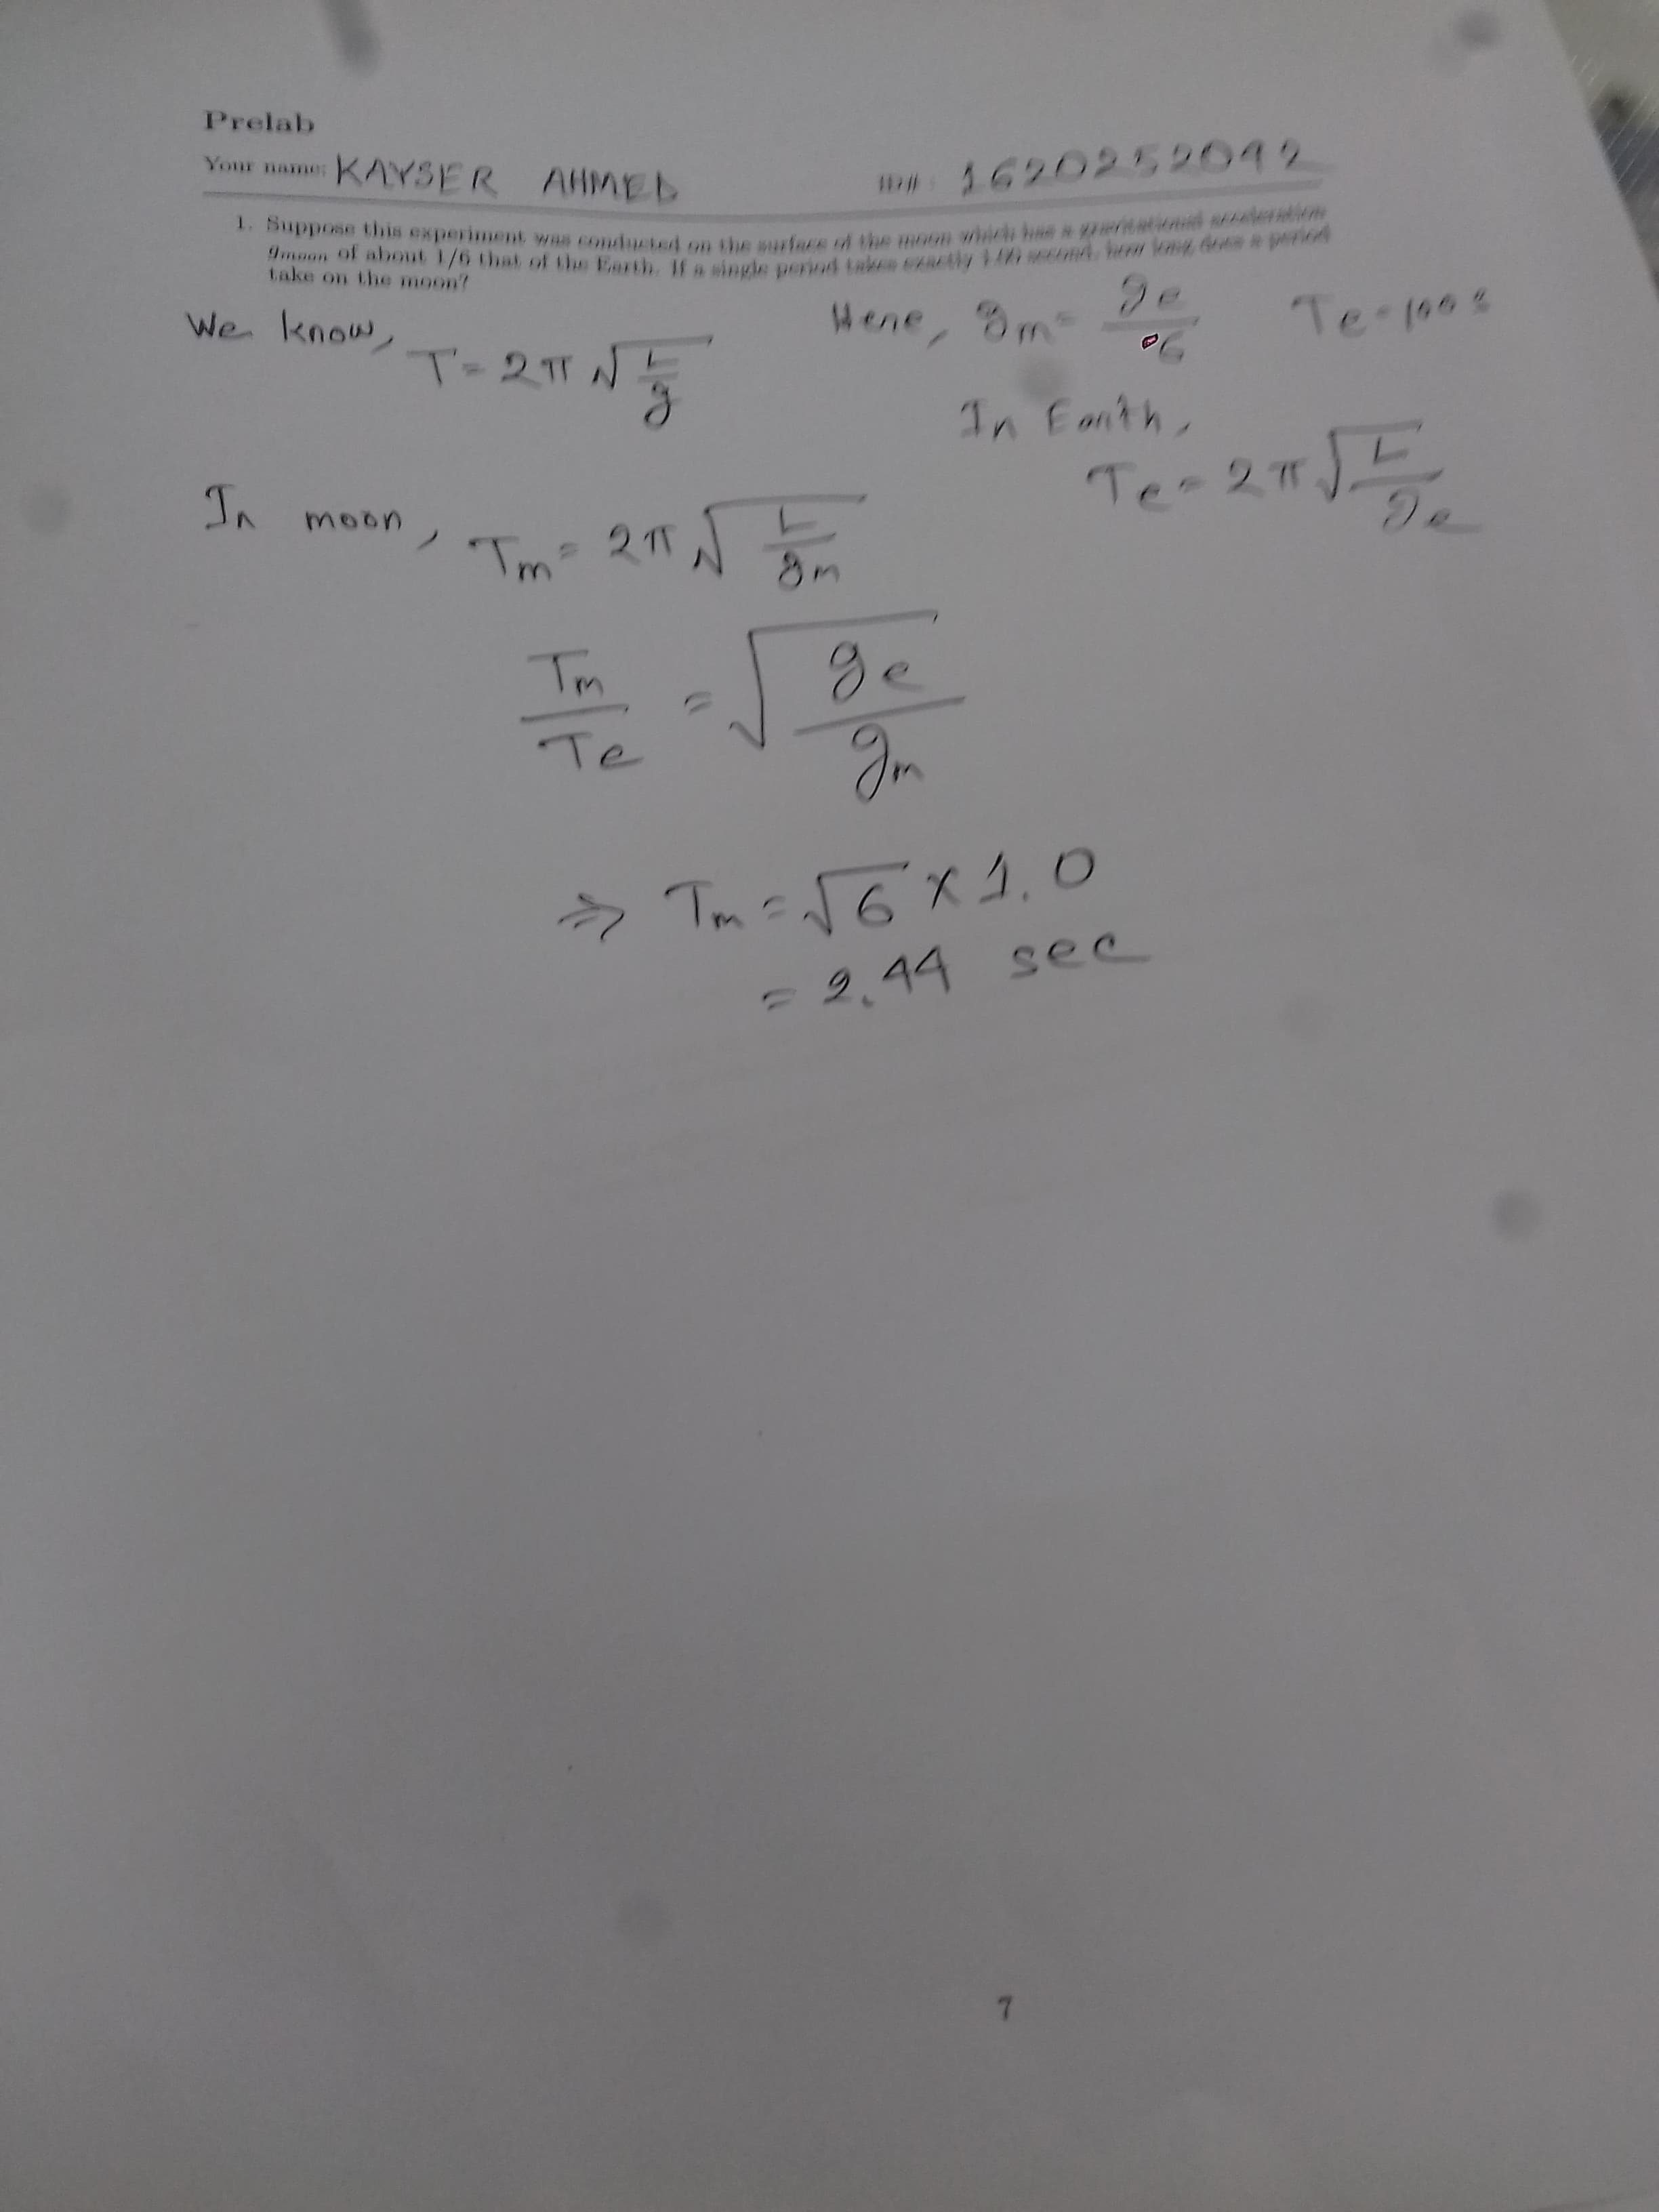 Prelab
Your name: KAYSER AHMED ID#: 1620252042
1. Suppose this experiment was conducted on the surface of the moon which has a gravitational acceleration
gmoon of about 1/6 that of the Earth. If a single period takes exactly 1.00 second, how long does a period
take on the moon?
We know, T = 2π √(L/g)
Here, gm = ge/6 Te = 1.00 s
In Earth,
Te = 2π √(L/ge)
In moon, Tm = 2π √(L/gm)
Tm/Te = √(ge/gm)
⇒ Tm = √6 × 1.0
= 2.44 sec
7